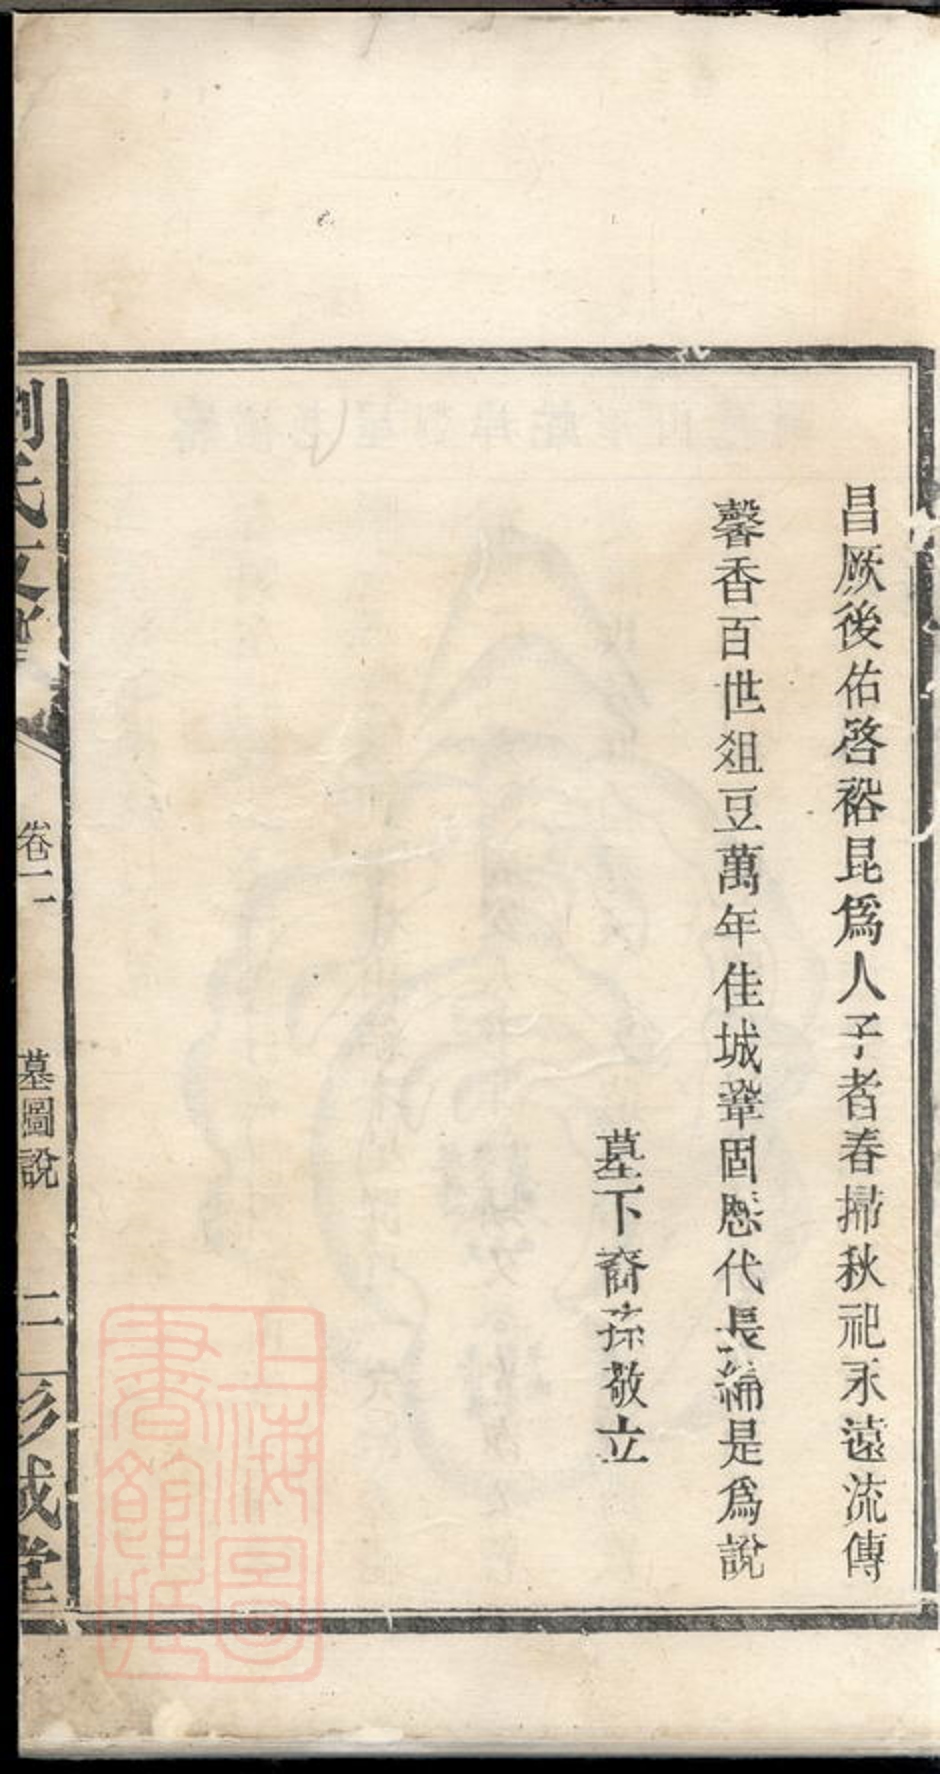 昌厥後佑啓裕昆爲人子者春掃秋祀永遠流傳
馨香百世俎豆萬年佳城鞏固懸代長綸是爲說
墓下裔孫敬立
劉氏支譜
卷二
墓圖說
二
彭城堂
上海圖
書館藏